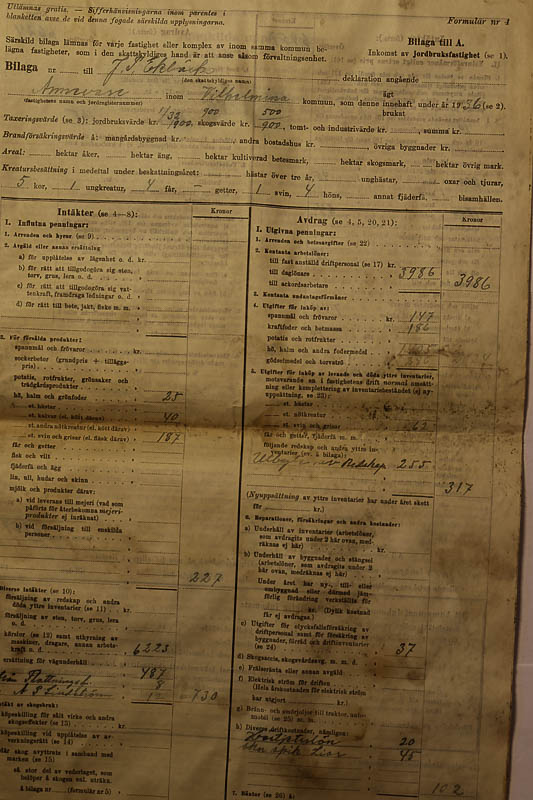 Utlämnas gratis. — Sifferhänvisningarna inom parentes i
blanketten avse de vid denna fogade särskilda upplysningarna.
Formulär nr 4
Särskild bilaga lämnas för varje fastighet eller komplex av inom samma kommun be-
lägna fastigheter, som i den skattskyldiges hand är att anse såsom förvaltningsenhet.
Bilaga till A.
Inkomst av jordbruksfastighet (se 1).
Bilaga till deklaration angående
(den skattskyldiges namn)
inom Vilhelmina kommun, som denne innehaft under år 1936 (se 2).
ägt
brukat
(fastighetens namn och jordregisternummer)
900 500
Taxeringsvärde (se 3): jordbruksvärde kr. 1900, skogsvärde kr. 900, tomt- och industrivärde kr. , summa kr.
Brandförsäkringsvärde å: mangårdsbyggnad kr. , andra bostadshus kr. , övriga byggnader kr.
Areal: hektar åker, hektar äng, hektar kultiverad betesmark, hektar skogsmark, hektar övrig mark.
Kreatursbesättning i medeltal under beskattningsåret: hästar över tre år, unghästar, oxar och tjurar,
5 kor, 1 ungkreatur, 4 får, — getter, 1 svin, 4 höns, annat fjäderfä, bisamhällen.
Intäkter (se 4—8):
Kronor
1. Influtna penningar:
1. Arrenden och hyror (se 9)
2. Avgäld eller annan ersättning
a) för upplåtelse av lägenhet o. d. kr.
b) för rätt att tillgodogöra sig sten,
torv, grus, lera o. d.
c) för rätt att tillgodogöra sig vat-
tenkraft, framdraga ledningar o. d.
d) för rätt till bete, jakt, fiske m. m.
3. För försålda produkter:
spannmål och frövaror kr.
sockerbetor (grundpris + tilläggs-
pris)
potatis, rotfrukter, grönsaker och
trädgårdsprodukter
hö, halm och grönfoder
st. hästar
st. kalvar (el. kött därav) 40
st. andra nötkreatur (el. kött därav)
st. svin och grisar (el. fläsk därav) 187
får och getter
fisk och vilt
fjäderfä och ägg
lin, ull, hudar och skinn
mjölk och produkter därav:
a) vid leverans till mejeri (vad som
påförts för återbekomna mejeri-
produkter ej inräknat)
b) vid försäljning till enskilda
personer
227
Diverse intäkter (se 10):
försäljning av redskap och andra
döda yttre inventarier (se 11) kr.
försäljning av sten, torv, grus, lera
o. d.
körslor (se 12) samt uthyrning av
maskiner, dragare, annan arbets-
kraft o. d. 6223
ersättning för vägunderhåll 487
730
Intäkt av skogsbruk:
köpeskilling för sålt virke och andra
skogseffekter (se 13) kr.
köpeskilling vid upplåtelse av av-
verkningsrätt (se 14)
där skog avyttrats i samband med
marken (se 15)
så stor del av vederlaget, som
belöper å skogen enl. uträkn.
å bilaga nr (formulär nr 5)
Avdrag (se 4, 5, 20, 21):
Kronor
1. Utgivna penningar:
1. Arrenden och hyresavgifter (se 22)
2. Kontanta arbetslöner:
till fast anställd driftpersonal (se 17) kr.
till daglönare 3986
till ackordsarbetare
3986
3. Kontanta undantagsförmåner
4. Utgifter för inköp av:
spannmål och frövaror kr. 147
kraftfoder och betmassa 186
potatis och rotfrukter
hö, halm och andra fodermedel
gödselmedel och torvströ
5. Utgifter för inköp av levande och döda yttre inventarier,
motsvarande en i fastighetens drift normal omsätt-
ning eller komplettering av inventariebeståndet (ej ny-
uppsättning, se 23):
st. hästar
st. nötkreatur
st. svin och grisar 62
får och getter, fjäderfä m. m.
följande redskap och andra yttre in-
ventarier (ev. å bilaga):
Redskap 255
317
(Nyuppsättning av yttre inventarier har under året skett
för kr.)
6. Reparationer, försäkringar och andra kostnader:
a) Underhåll av inventarier (arbetslöner,
som avdragits under 2 här ovan, med-
räknas ej här) kr.
b) Underhåll av byggnader och stängsel
(arbetslöner, som avdragits under 2
här ovan, medräknas ej här)
Under året har ny-, till- eller
ombyggnad eller därmed jäm-
förlig förändring verkställts för
kr. (Dylik kostnad
får ej avdragas.)
c) Utgifter för olycksfallsförsäkring av
driftpersonal samt för försäkring av
byggnader, förråd och driftinventarier
(se 24) 37
d) Skogsaccis, skogsvårdsavg. m. m. d.
e) Frälseränta eller annan avgäld
f) Elektrisk ström för driften
(Hela årskostnaden för elektrisk ström
har utgjort kr.)
g) Bränn- och smörjoljor till traktor, auto-
mobil (se 25) m. m.
h) Diverse driftkostnader, nämligen:
20
45
102
7. Räntor (se 26) å: